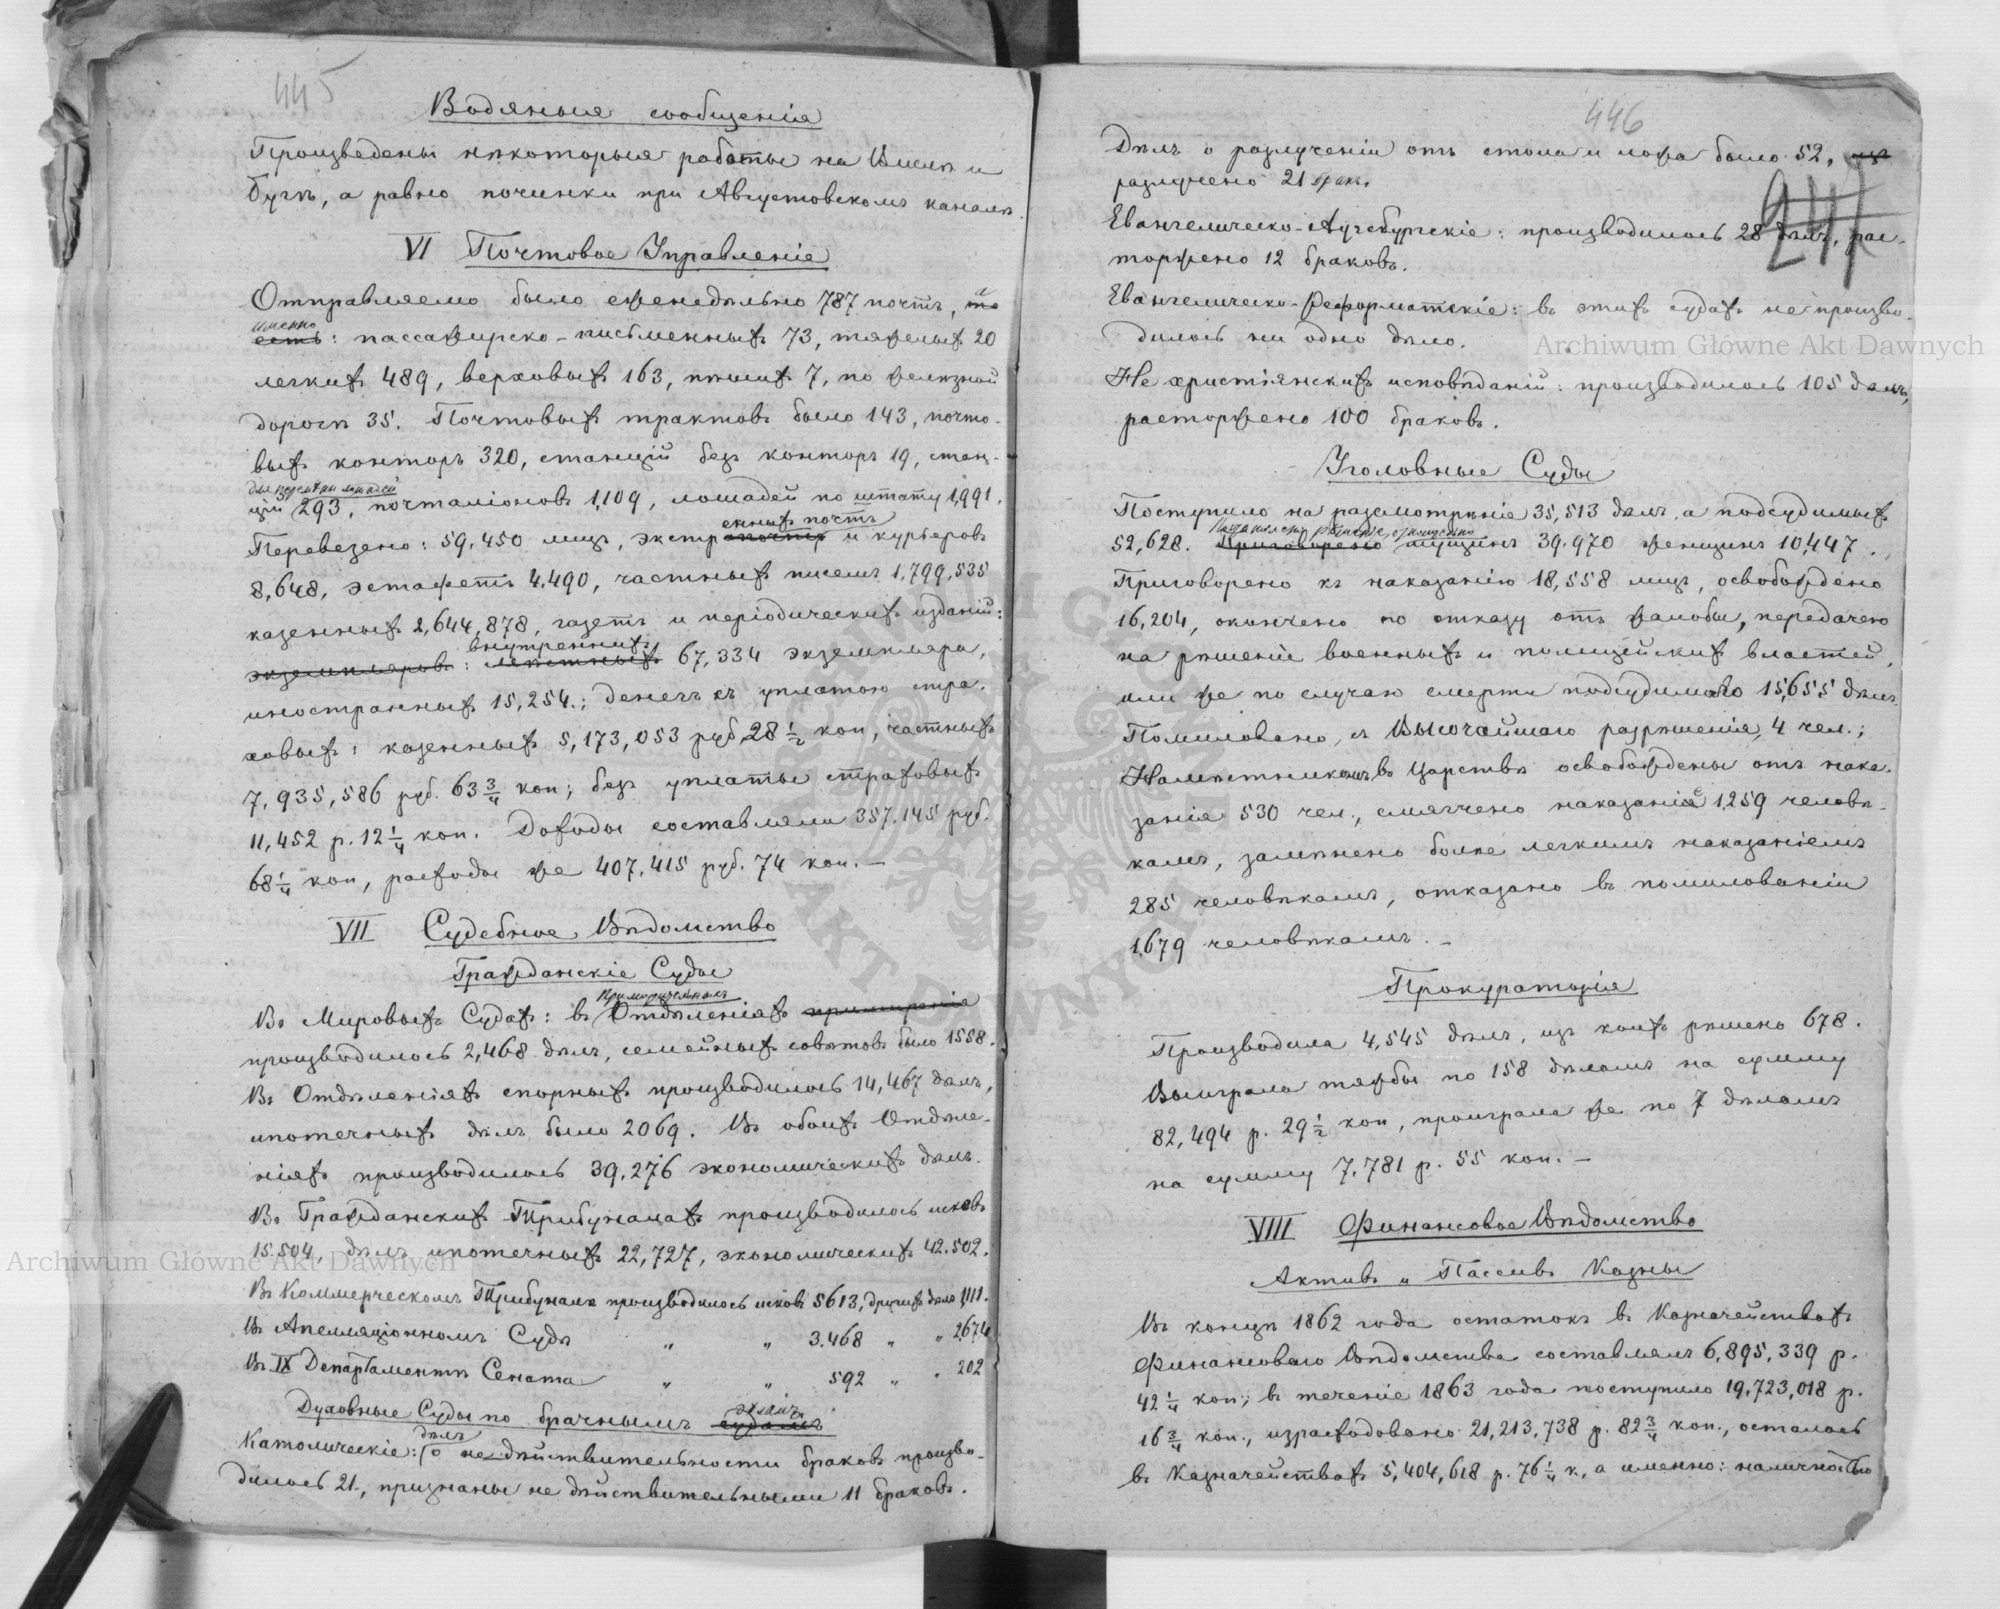 445
Водяныя сообщенія
Произведены нѣкоторыя работы на Вислѣ и
Бугѣ, а равно починки при Августовскомъ каналѣ.
VI Почтовое Управленіе
Отправляемо было еженедѣльно 787 почтъ, а то
именно
есть: пассажирско-письменныхъ 73, тяжелыхъ 20
легкихъ 489, верховыхъ 163, пѣшихъ 7, по желѣзной
дорогѣ 35. Почтовыхъ трактовъ было 143, почто-
выхъ конторъ 320, станцій безъ конторъ 19, стан-
для перемѣны лошадей
цій 293, почталіоновъ 1,109, лошадей по штату 1,991.
енныхъ почтъ
Перевезено: 59,450 лицъ, экстрапочтъ и курьеровъ
8,648, эстафетъ 4,490, частныхъ писемъ 1,799,535
казенныхъ 2,644,878, газетъ и періодическихъ изданій:
внутреннихъ
экземпляровъ: мѣстныхъ 67,334 экземпляра,
иностранныхъ 15,254.; денегъ съ уплатою стра-
ховыхъ: казенныхъ 5,173,053 руб. 28 1/2 коп, частныхъ
7,935,586 руб. 63 3/4 коп; безъ уплаты страховыхъ
11,452 р. 12 1/4 коп. Доходы составляли 357.145 руб.
68 1/4 коп, расходы же 407,415 руб. 74 коп. —
VII Судебное Вѣдомство
Гражданскіе Суды
примирительныхъ
Въ Мировыхъ Судахъ: въ Отдѣленіяхъ примиренія
производилось 2,468 дѣлъ, семейныхъ совѣтовъ было 1558.
Въ Отдѣленіяхъ спорныхъ производилось 14,467 дѣлъ,
ипотечныхъ дѣлъ было 2069. Въ обоихъ Отдѣле-
ніяхъ производилось 39,276 экономическихъ дѣлъ.
Въ Гражданскихъ Трибуналахъ производилось исковъ
15.504, дѣлъ ипотечныхъ 22,727, экономическихъ 42.502.
Въ Коммерческомъ Трибуналѣ производилось исковъ 5613, другихъ дѣлъ 1,111.
Въ Апелляціонномъ Судѣ „ „ 3.468 „ „ 2674
Въ IX Департаментѣ Сената „ „ 592 „ „ 202
дѣламъ
Духовные Суды по брачнымъ судамъ
дѣлъ
Католическіе: о не дѣйствительности браковъ произво-
дилось 21, признаны не дѣйствительными 11 браковъ.
446
247
Дѣлъ о разлученіи отъ стола и ложа было 52, изъ
разлучено 21 брак.
Евангелическо-Аугсбургскіе: производилось 28 дѣлъ, рас-
торжено 12 браковъ.
Евангелическо-Реформатскіе: въ этихъ судахъ не произво-
дилось ни одно дѣло.
Не христіянскихъ исповѣданій: производилось 105 дѣлъ,
расторжено 100 браковъ.
Уголовные Суды
Поступило на разсмотрѣніе 35,513 дѣлъ, а подсудимыхъ
52,628. Приговорено мущинъ 39.970 женщинъ 10,447.
Приговорено къ наказанію 18,558 лицъ, освобождено
16,204, окончено по отказу отъ жалобы, передачею
на рѣшеніе военныхъ и полицейскихъ властей,
или же по случаю смерти подсудимаго 15,655 дѣлъ.
Помиловано, съ Высочайшаго разрѣшенія, 4 чел.;
Намѣстникомъ въ Царствѣ освобождены отъ нака-
занія 530 чел., смягчено наказаніе 1,259 человѣ-
камъ, замѣнено болѣе легкимъ наказаніемъ
285 человѣкамъ, отказано въ помилованіи
1,679 человѣкамъ. —
Прокураторія
Производила 4,545 дѣлъ, изъ коихъ рѣшено 678.
Выиграла тяжбы по 158 дѣламъ на сумму
82,494 р. 29 1/2 коп, проиграла же по 7 дѣламъ
на сумму 7,781 р. 55 коп. —
VIII Финансовое Вѣдомство
Активъ и Пассивъ Казны
Въ концѣ 1862 года остатокъ въ Казначействахъ
Финансоваго Вѣдомства составлялъ 6,895,339 р.
42 1/4 коп; въ теченіе 1863 года поступило 19,723,018 р.
16 3/4 коп., израсходовано 21,213,738 р. 82 3/4 коп., осталось
въ Казначействахъ 5,404,618 р. 76 1/4 к, а именно: наличностью
Archiwum Główne Akt Dawnych
Archiwum Główne Akt Dawnych
ARCHIWUM GŁÓWNE AKT DAWNYCH